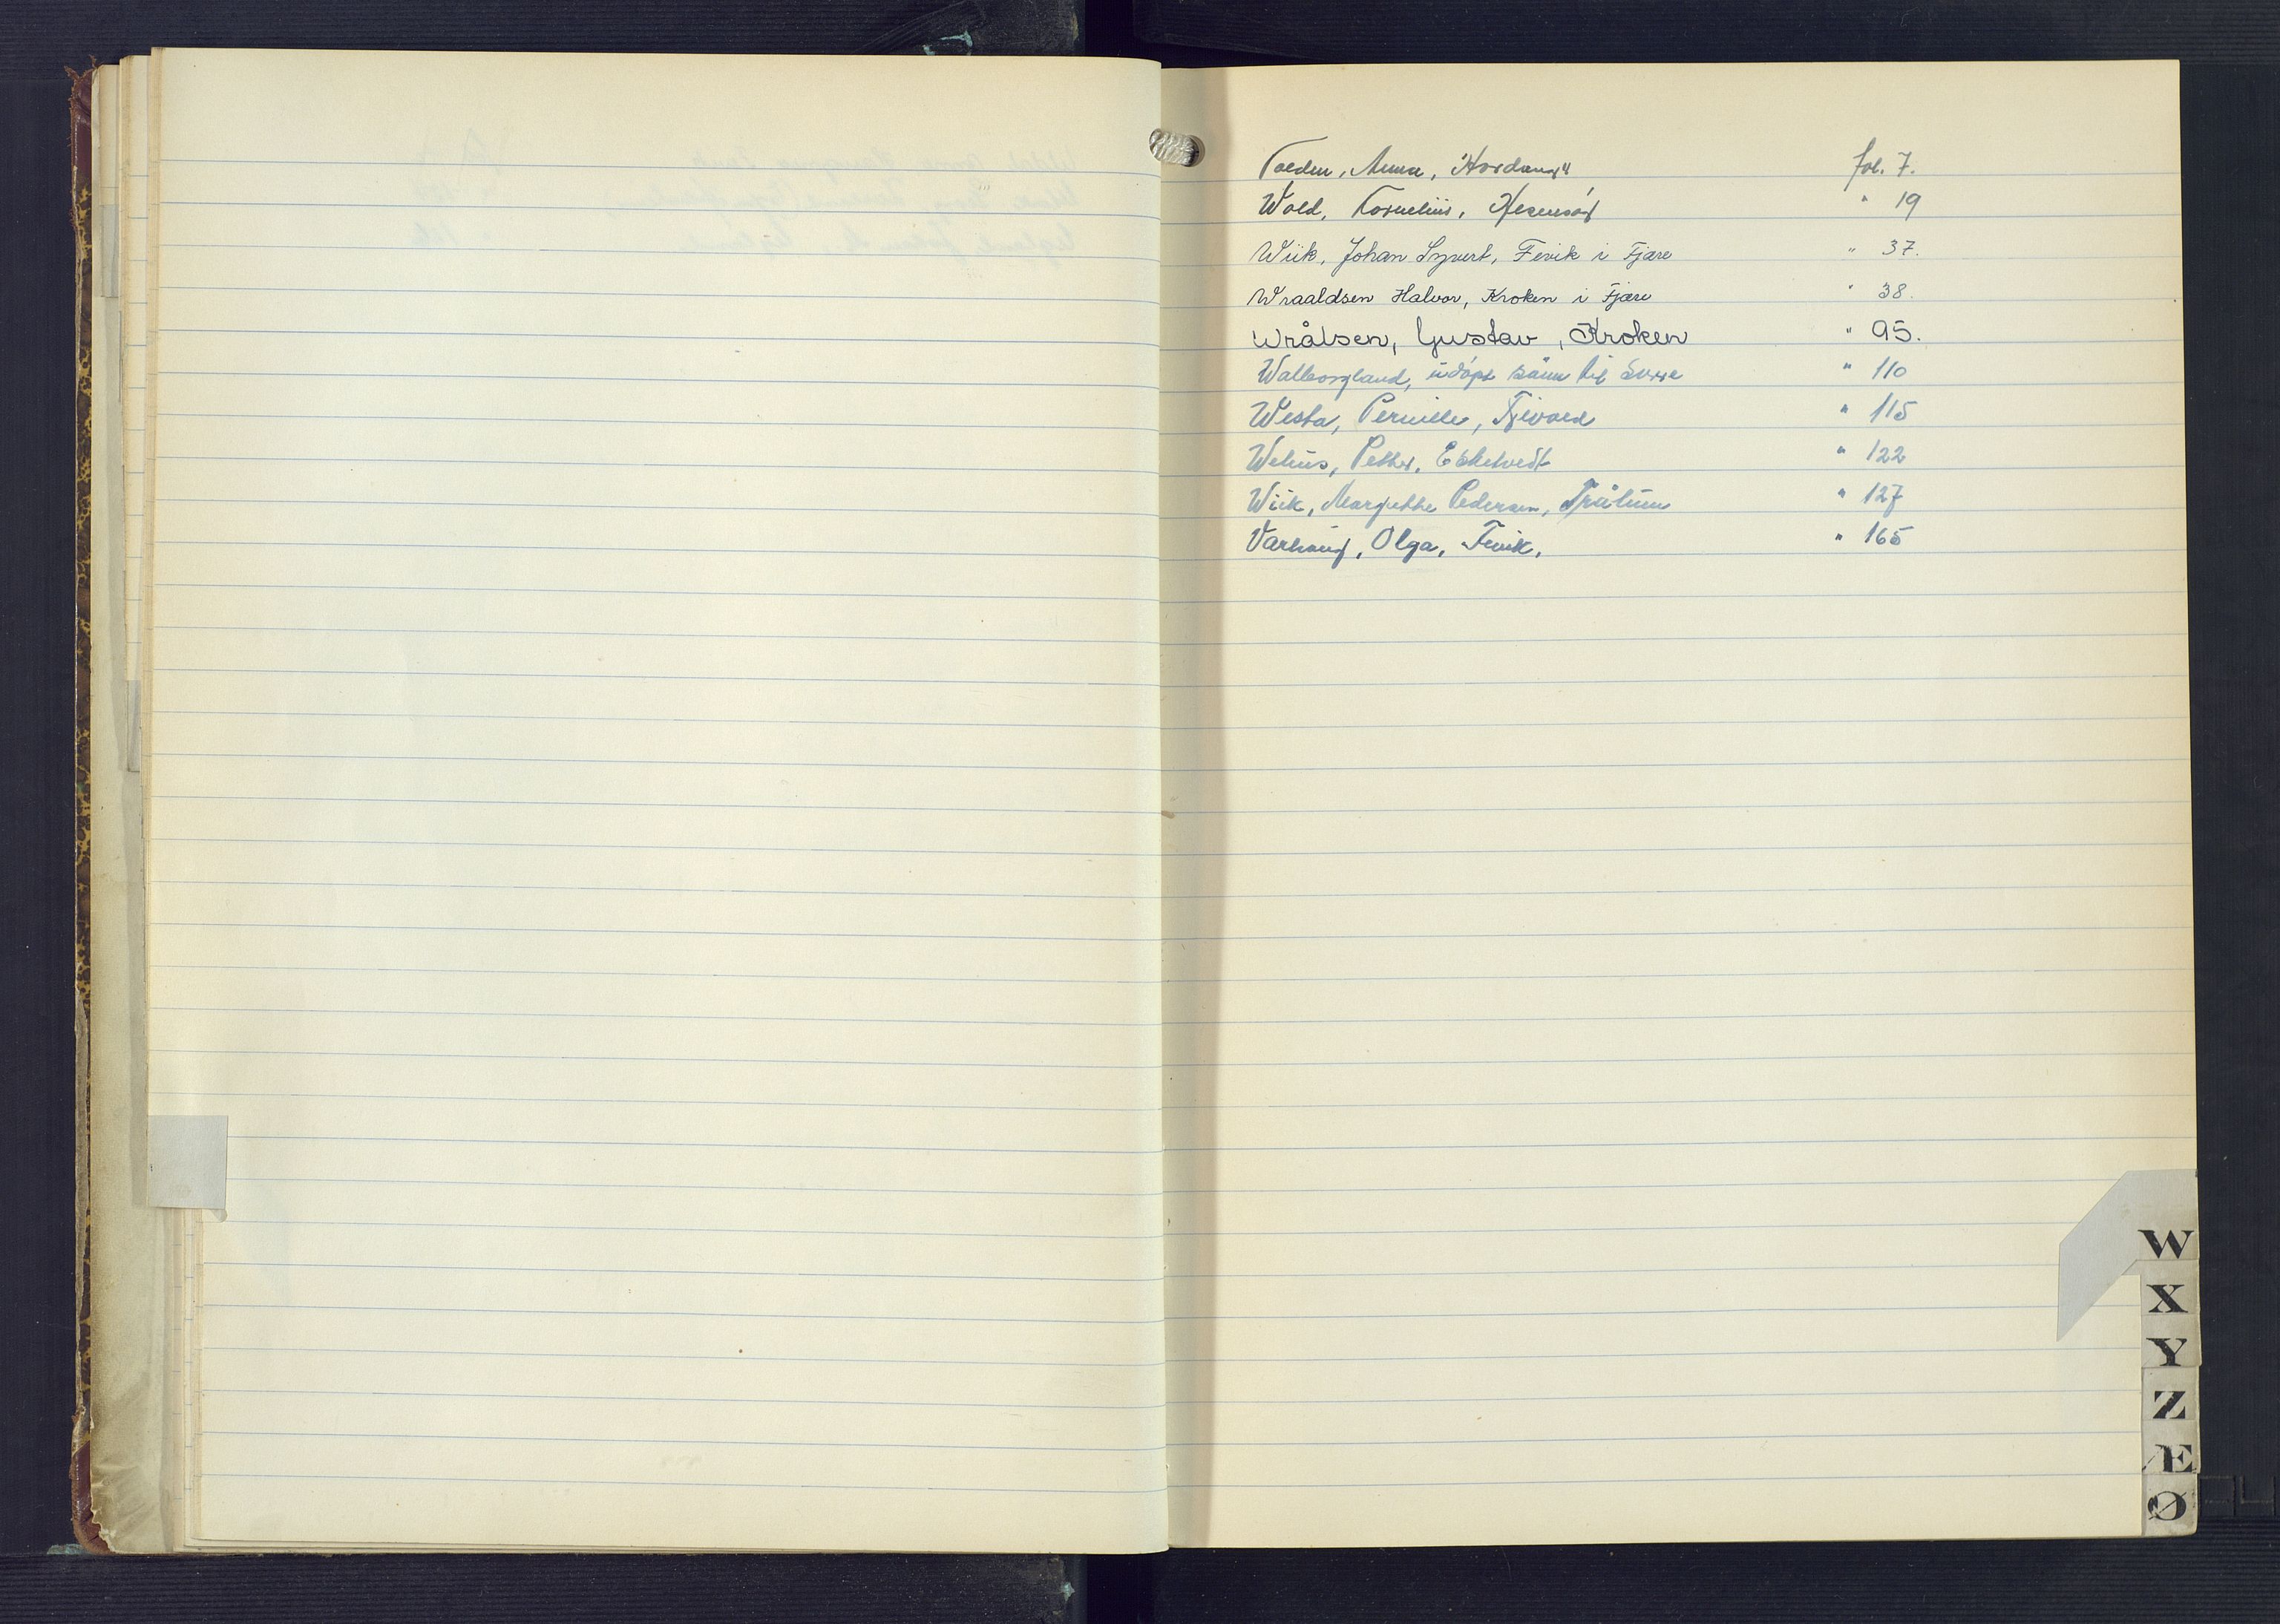 Volden, Anna, "Nordang" fol. 7.
Wold, Kornelius, Hesnesøy " 19
Wiik, Johan Syvert, Fevik i Fjære " 37.
Wraaldsen Halvor, Kroken i Fjære " 38.
Wrålsen, Gustav, Kroken " 95.
Walborgland, udøpt sønn til Sverre " 110
Westa, Pernille, Tjevoll " 115
Welius, Petter, Esketvedt " 122
Wiik, Margrethe Pedersen, " 127
Varhaug, Olga, Fevik. " 165
W
X
Y
Z
Æ
Ø